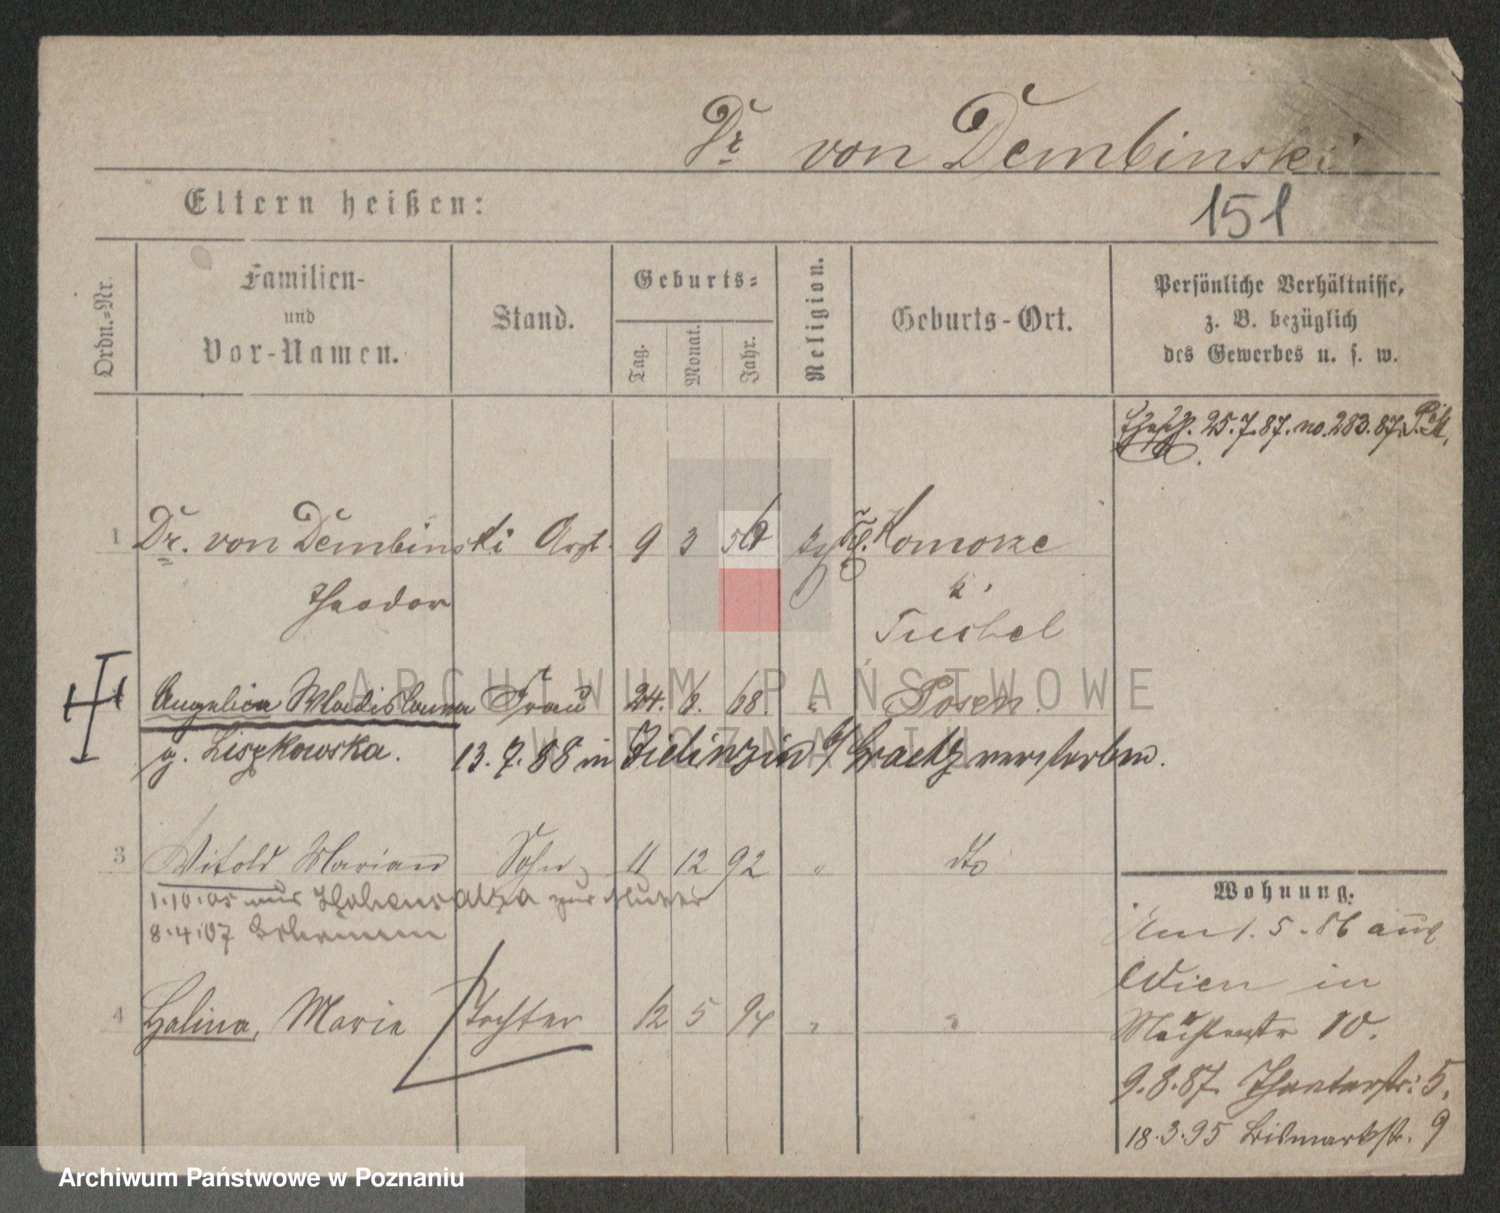 Dr von Dembinski
151
Eltern heißen:
Ordn.-Nr.
Familien-
und
Vor-Namen.
Stand.
Geburts-
Tag.
Monat.
Jahr.
Religion.
Geburts-Ort.
Persönliche Verhältnisse,
z. B. bezüglich
des Gewerbes u. s. w.
25.7.87. no. 283.87.
1 Dr. von Dembinski Arzt 9 3 56 Komorze
Theodor
Tuchel
ARCHIWUM PAŃSTWOWE
W POZNANIU
Angelica Wladislawa Frau 24. 6. 68. " Posen.
g. Liszkowska. 13. 7. 88 in b/ Graetz verstorben.
3 Witold Marian Sohn 11 12 92 " dto
1.10.05 aus Hohensalza zur Mutter
8.4.07
4 Halina, Marie Tochter 12 5 94 " "
Wohnung.
Am 1. 5. 86 aus
Wien in
10.
9.8.87. Theaterstr: 5.
18.3.95 Bismarckstr. 9
Archiwum Państwowe w Poznaniu